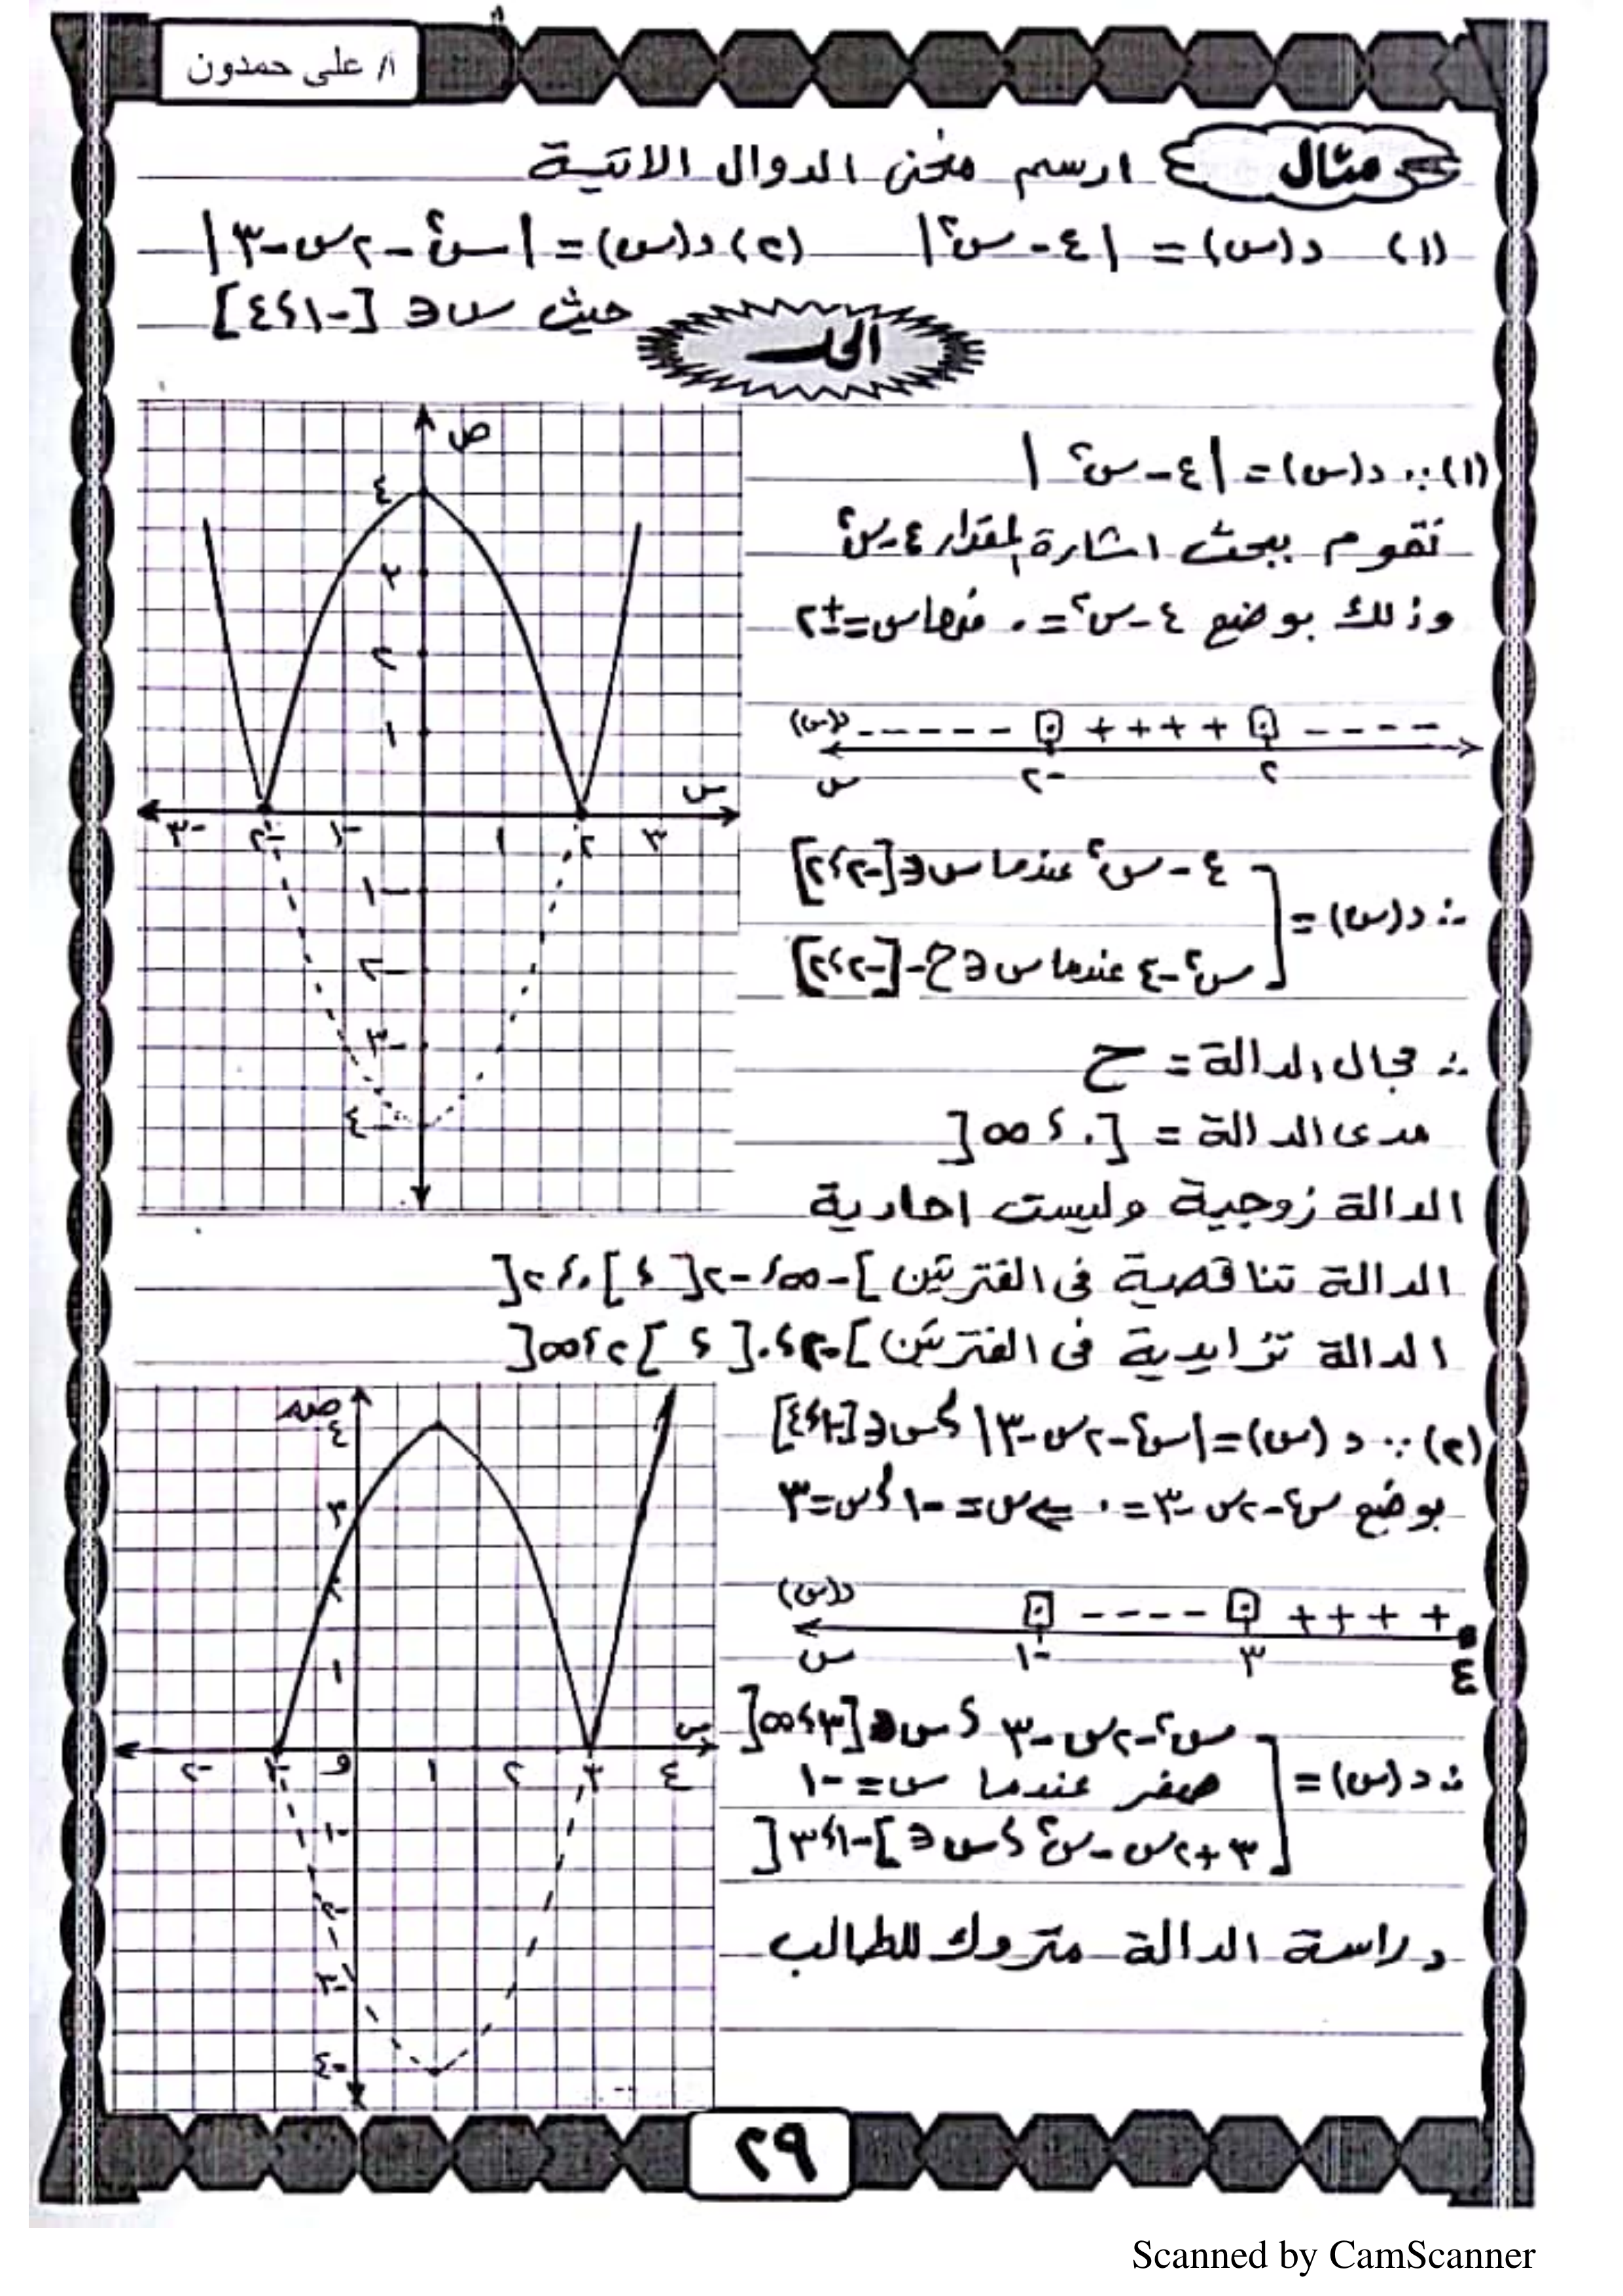 أ/ على حمدون
مثال ارسم منحنى الدوال الاتية
(١) د(س) = |٤ - س²| (٢) د(س) = |س² - ٢س - ٣|
حيث س ∈ [-١، ٤]
الحل
(١) ∵ د(س) = |٤ - س²|
نقوم ببحث اشارة المقدار ٤ - س²
وذلك بوضع ٤ - س² = ٠ منها س = ± ٢
د(س) - - - - - ٠ + + + + ٠ - - - -
س -٢ ٢
∴ د(س) = ٤ - س² عندما س ∈ [-٢، ٢]
س² - ٤ عندما س ∈ ح - [-٢، ٢]
∴ مجال الدالة = ح
مدى الدالة = [٠، ∞[
الدالة زوجية وليست احادية
الدالة تناقصية فى الفترتين ]-∞، -٢[ ، ]٠، ٢[
الدالة تزايدية فى الفترتين ]-٢، ٠[ ، ]٢، ∞[
ص
٤
٣
٢
١
س
-٣ -٢ -١ ١ ٢ ٣
-١
-٢
-٣
-٤
(٢) ∵ د(س) = |س² - ٢س - ٣| ، س ∈ [-١، ٤]
بوضع س² - ٢س - ٣ = ٠ ⇐ س = -١ ، س = ٣
د(س) ٠ - - - - ٠ + + + +
س -١ ٣ ٤
∴ د(س) = س² - ٢س - ٣ ، س ∈ [٣، ∞[
صفر عندما س = -١
٣ + ٢س - س² ، س ∈ ]-١، ٣[
دراسة الدالة متروك للطالب
ص
٤
٣
٢
١
س
-٢ -١ و ١ ٢ ٣ ٤
-١
-٢
-٣
-٤
٢٩
Scanned by CamScanner